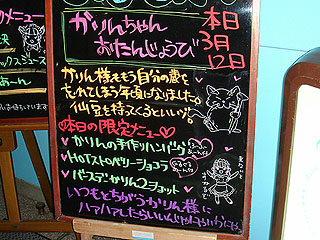 のメニュー
ックスジュース
あーん
かりんちゃん
おたんじょうび
本日
3月
12日
かりん様ももう自分の歳を
忘れてしまう年頃になりました。
仙豆を持ってくるといいゾ。
♥本日の限定メニュー♥
♥かりんの手作りハンバーグ
♥HOTストロベリーショコラ
♥バースデーかりん2ショット
いつもとちがうかりん様に
ハァハァしたらいいんじゃないかしら